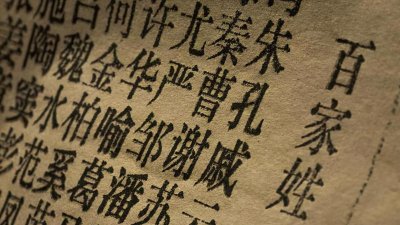 百家姓
朱秦尤许何吕施
孔曹严华金魏陶姜
戚谢邹喻柏水窦
云苏潘葛奚范彭